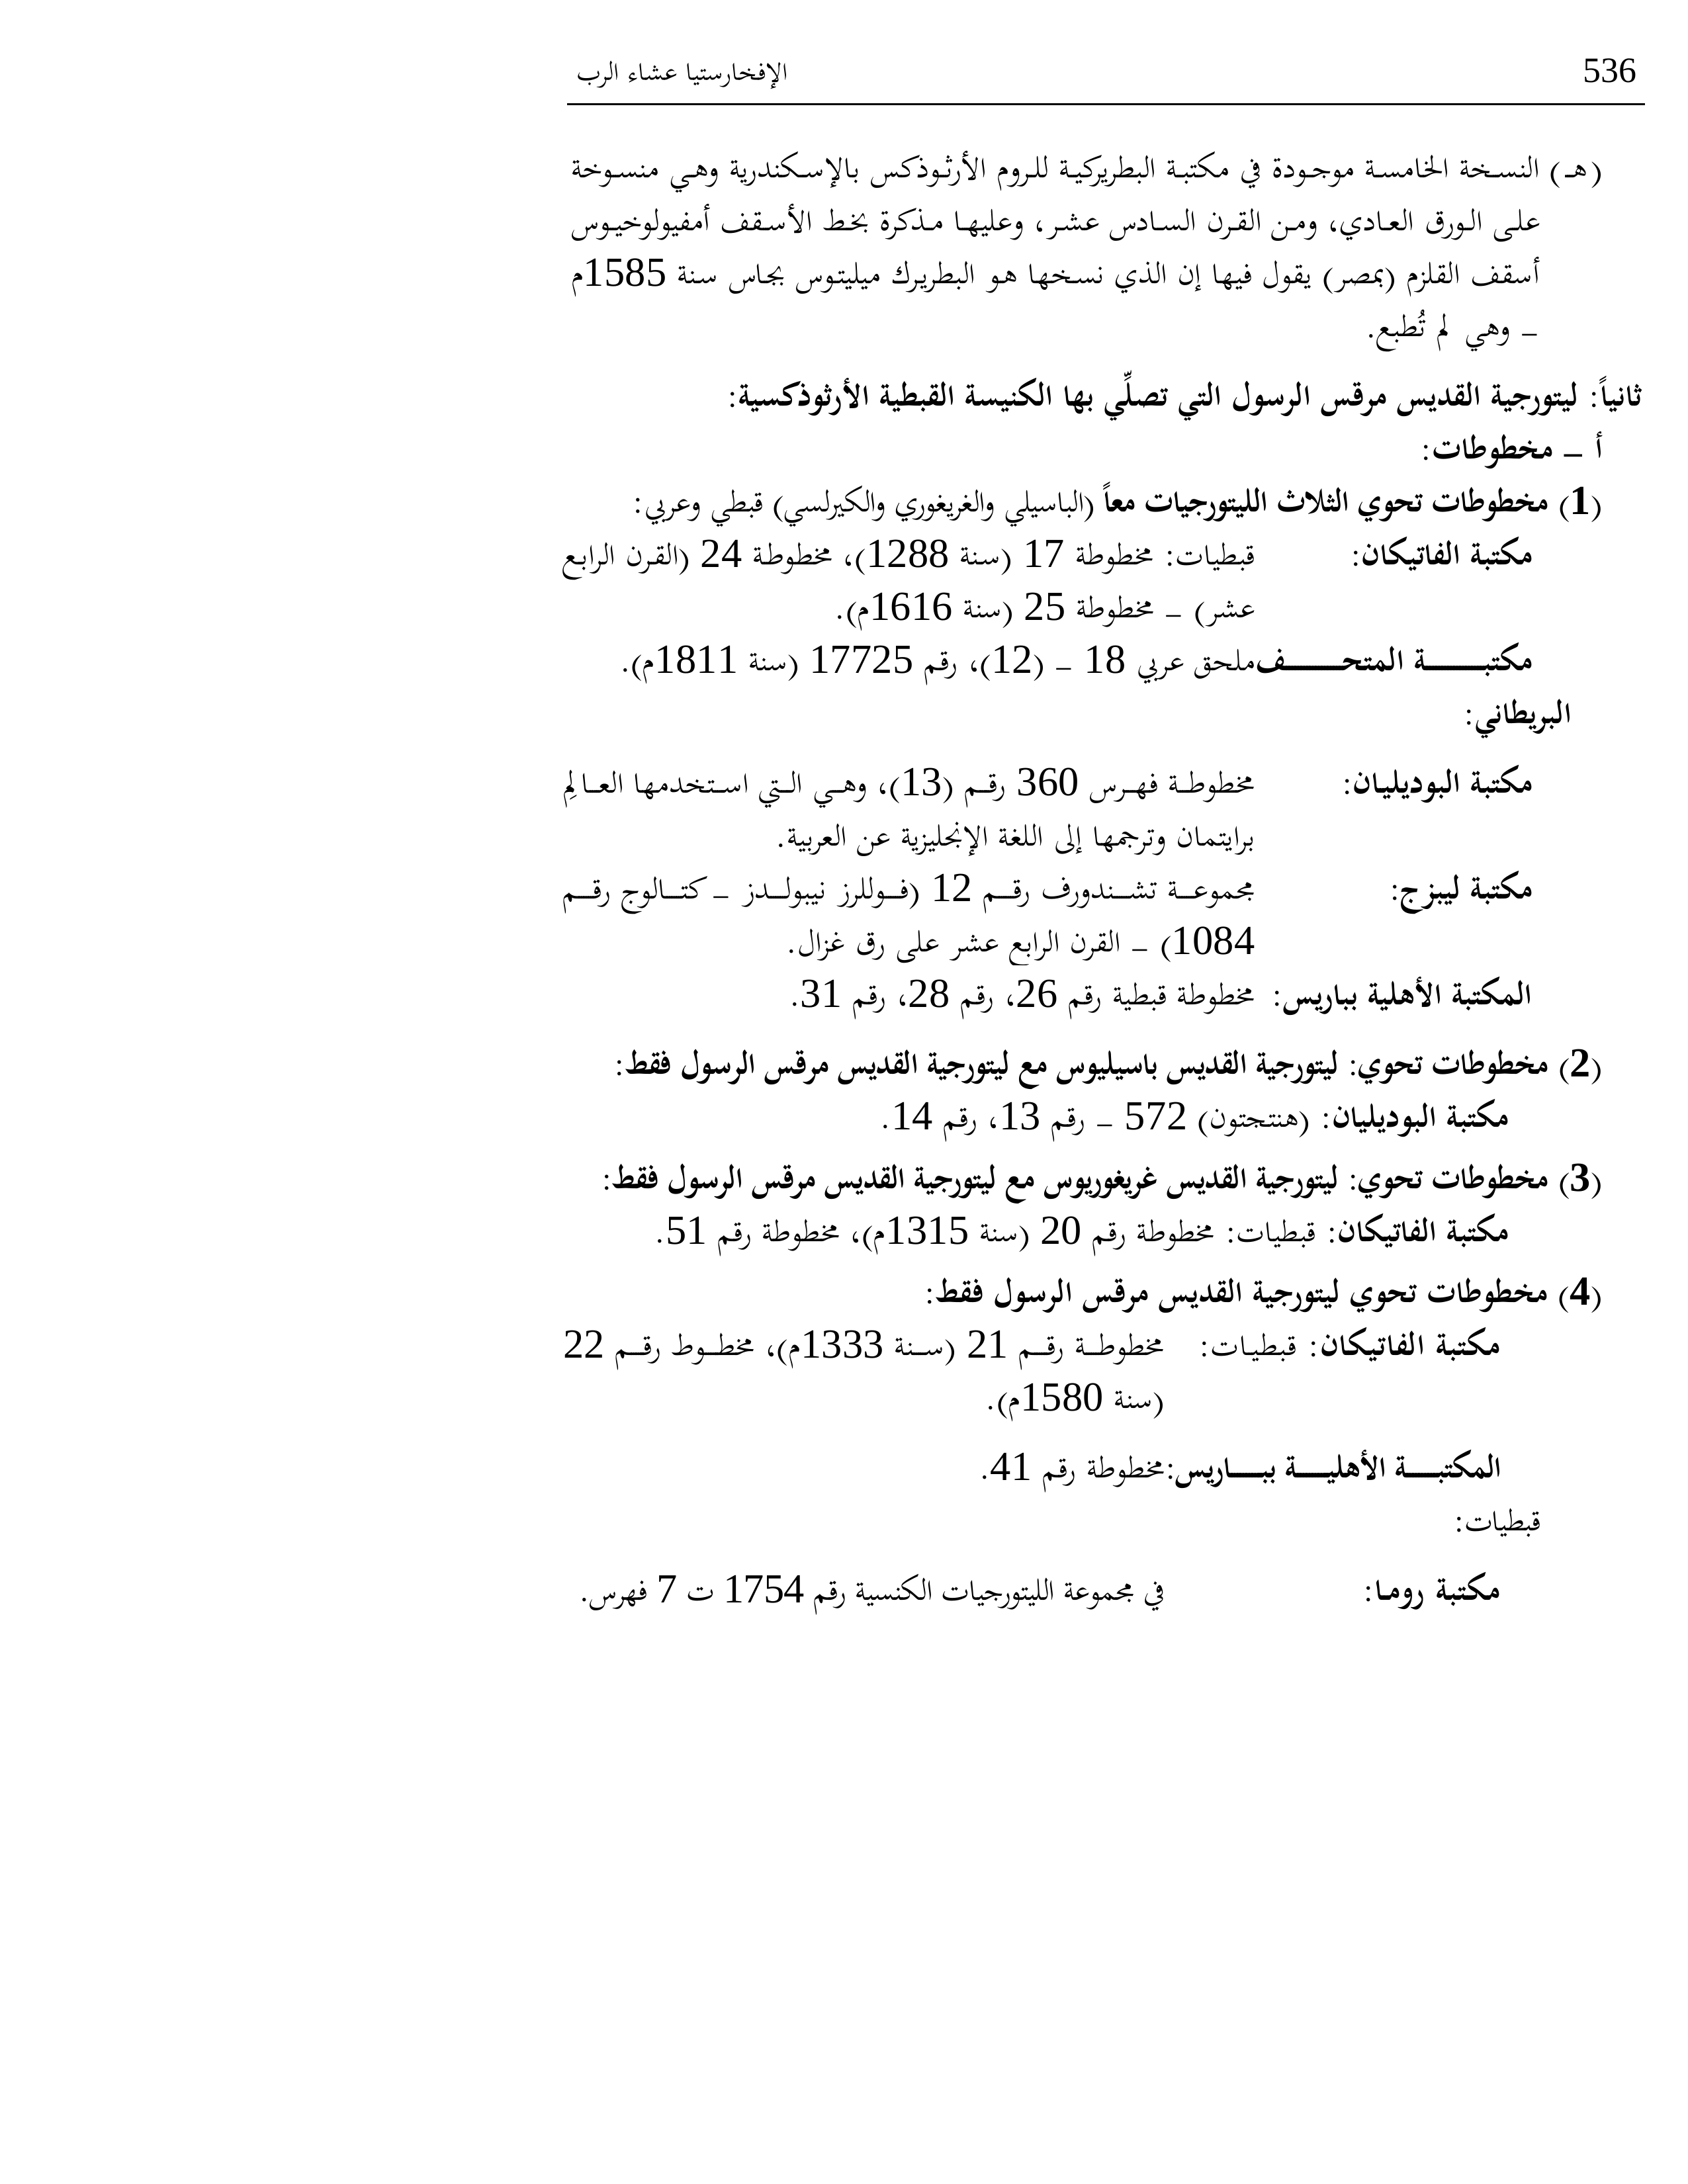 536 الإفخارستيا عشاء الرب
(هـ) النسخة الخامسة موجودة في مكتبة البطريركية للروم الأرثوذكس بالإسكندرية وهي منسوخة
على الورق العادي، ومن القرن السادس عشر، وعليها مذكرة بخط الأسقف أمفيولوخيوس
أسقف القلزم (بمصر) يقول فيها إن الذي نسخها هو البطريرك ميليتوس بجاس سنة 1585م
– وهي لم تُطبع.
ثانياً: ليتورجية القديس مرقس الرسول التي تصلِّي بها الكنيسة القبطية الأرثوذكسية:
أ – مخطوطات:
(1) مخطوطات تحوي الثلاث الليتورجيات معاً (الباسيلي والغريغوري والكيرلسي) قبطي وعربي:
مكتبة الفاتيكان: قبطيات: مخطوطة 17 (سنة 1288)، مخطوطة 24 (القرن الرابع
عشر) – مخطوطة 25 (سنة 1616م).
مكتبة المتحف ملحق عربي 18 – (12)، رقم 17725 (سنة 1811م).
البريطاني:
مكتبة البوديليان: مخطوطة فهرس 360 رقم (13)، وهي التي استخدمها العالِم
برايتمان وترجمها إلى اللغة الإنجليزية عن العربية.
مكتبة ليبزج: مجموعة تشندورف رقم 12 (فوللرز نيبولدز – كتالوج رقم
1084) – القرن الرابع عشر على رق غزال.
المكتبة الأهلية بباريس: مخطوطة قبطية رقم 26، رقم 28، رقم 31.
(2) مخطوطات تحوي: ليتورجية القديس باسيليوس مع ليتورجية القديس مرقس الرسول فقط:
مكتبة البوديليان: (هنتجتون) 572 – رقم 13، رقم 14.
(3) مخطوطات تحوي: ليتورجية القديس غريغوريوس مع ليتورجية القديس مرقس الرسول فقط:
مكتبة الفاتيكان: قبطيات: مخطوطة رقم 20 (سنة 1315م)، مخطوطة رقم 51.
(4) مخطوطات تحوي ليتورجية القديس مرقس الرسول فقط:
مكتبة الفاتيكان: قبطيات: مخطوطة رقم 21 (سنة 1333م)، مخطوط رقم 22
(سنة 1580م).
المكتبة الأهلية بباريس: مخطوطة رقم 41.
قبطيات:
مكتبة روما: في مجموعة الليتورجيات الكنسية رقم 1754 ت 7 فهرس.